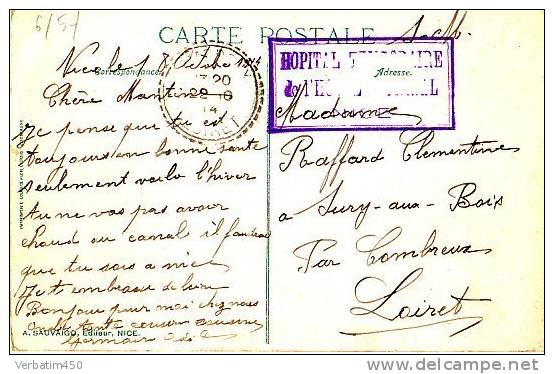 6/57
CARTE POSTALE
S. M.
Correspondance
Adresse.
HOPITAL TEMPORAIRE
de l'HOTEL
Nice le 18 Octobre 1914
20
22 - 8
14
LOIRET
Chère Mantine
Je pense que tu est
toujours en bonne santé
seulement voila l'hiver
tu ne vas pas avoir
chaud au canal il faudrai
que tu sois a nice
Je t embrasse
Bonjour pour moi chez nous
tante cousin cousine
Germain
Madame
Raffard Clementine
a Sury-aux-Bois
Par Combreux
Loiret
A. SAUVAIGO, Editeur, NICE.
Verbatim450
delcampe.net